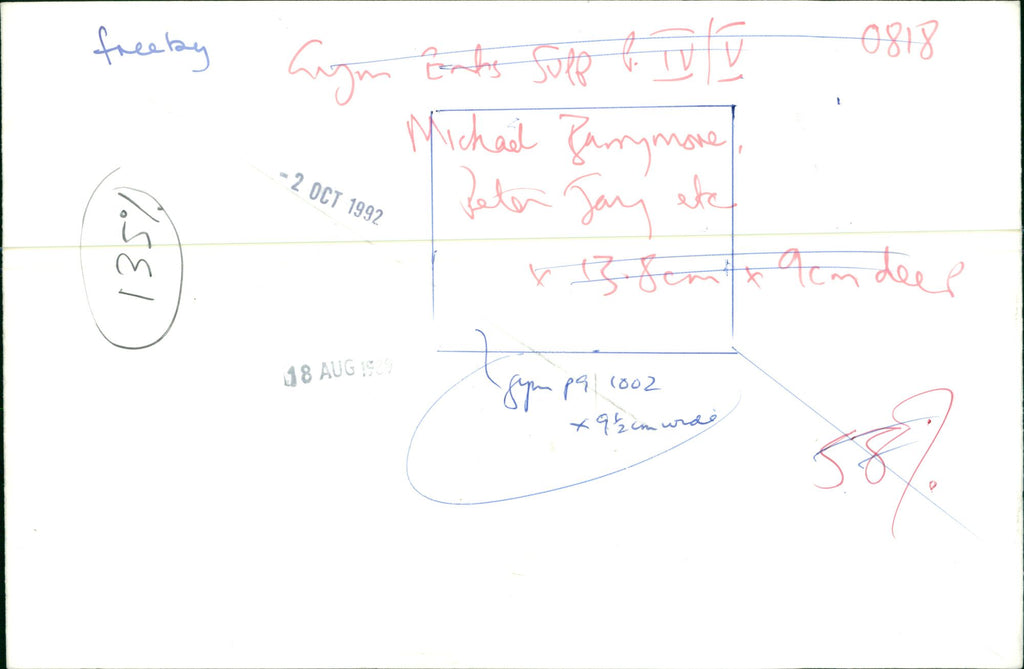 freeby
Gym Ents Supp p. IV/V 0818
Michael Barrymore,
Peter Jay etc
x 13.8cm x 9cm deep
-2 OCT 1992
135%
18 AUG 19
gym p9 1002
x 9½cm wide
58%